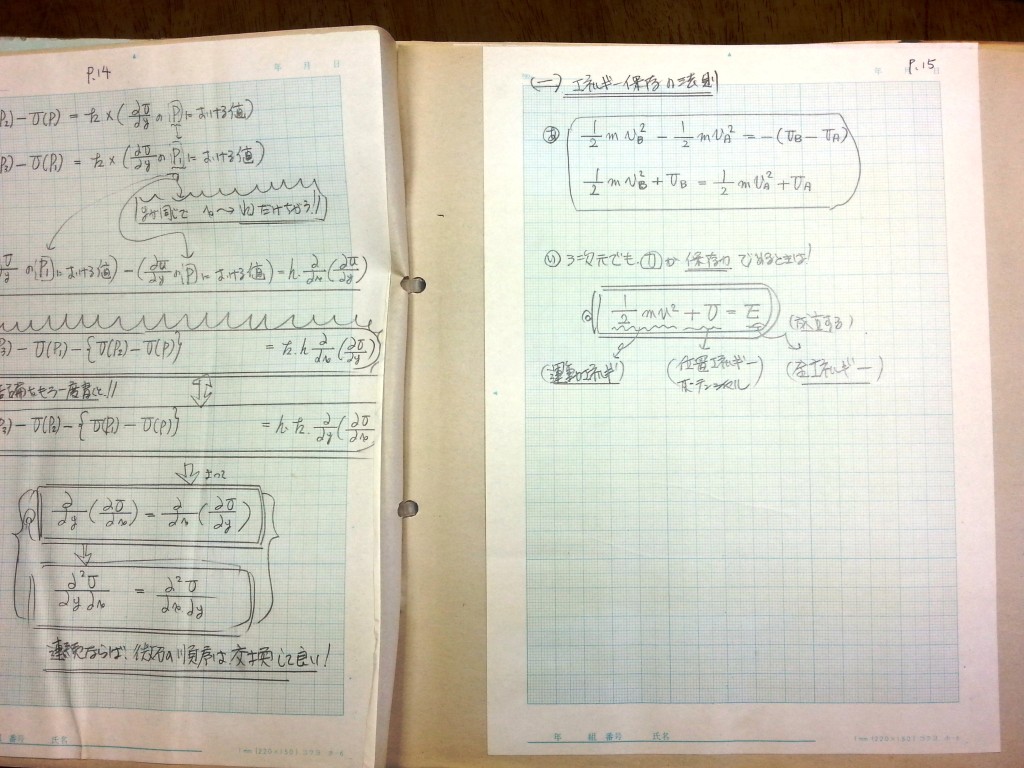 P.14
年 月 日
P₂) − U(P) = k × (∂U/∂y の P における値)
P₃) − U(P₁) = k × (∂U/∂y の P₁ における値)
yが同じで x → xだけちがう!!
∂U/∂y の P₁ における値) − (∂U/∂y の P における値) = h・∂/∂x (∂U/∂y)
P₃) − U(P₁) − {U(P₂) − U(P)} = k・h ∂/∂x (∂U/∂y)
もう一度書くと!!
P₃) − U(P₂) − {U(P₁) − U(P)} = h・k・∂/∂y (∂U/∂x
よって
∂/∂y (∂U/∂x) = ∂/∂x (∂U/∂y)
∂²U/∂y∂x = ∂²U/∂x∂y
連続ならば、微分の順序は交換して良い!
組 番号 氏名
P.15
年
(一) エネルギー保存の法則
あ ½ m v_B² − ½ m v_A² = −(U_B − U_A)
½ m v_B² + U_B = ½ m v_A² + U_A
い 3次元でも 力 が 保存力 であるときは!
½ mv² + U = E (成立する)
(運動エネルギ) (位置エネルギー (全エネルギー)
ポテンシャル)
年 組 番号 氏名